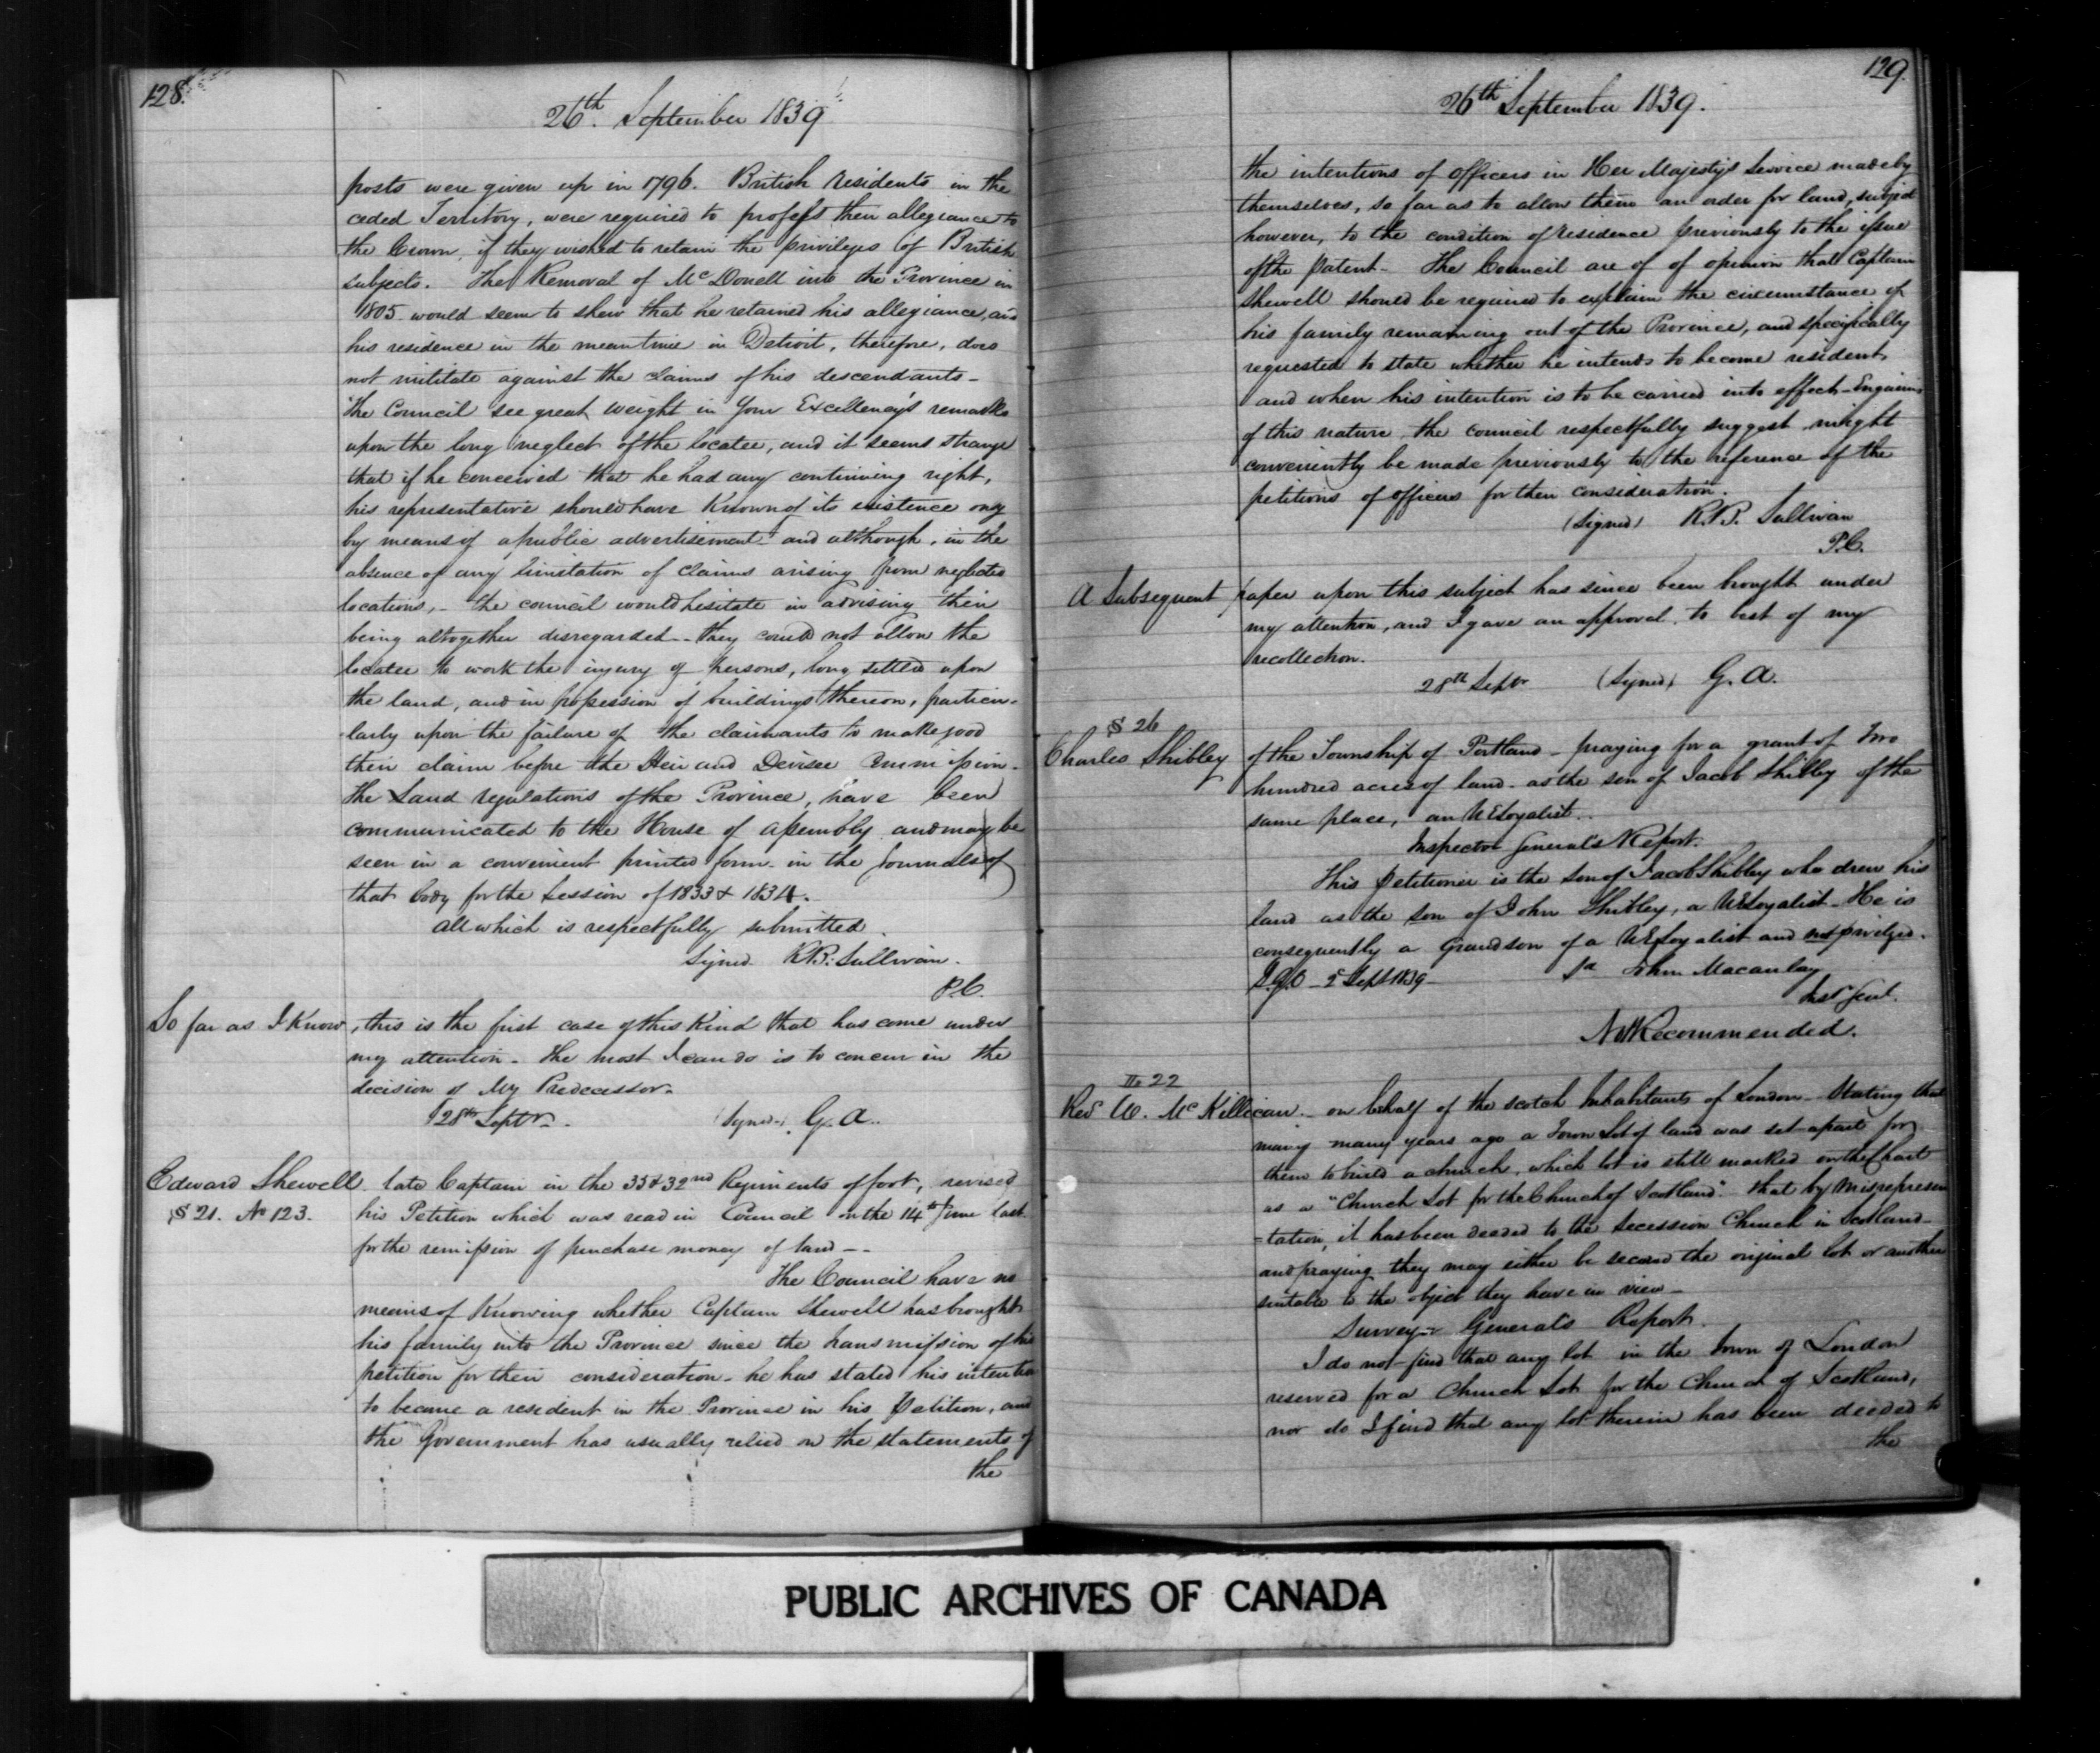 128.
26th. September 1839
posts were given up in 1796. British residents in the
ceded Territory, were required to profess their allegiance to
the Crown, if they wished to retain the privileges of British
subjects. The Removal of McDonell into the Province in
1805 would seem to shew that he retained his allegiance, and
his residence in the meantime in Detroit, therefore, does
not mititate against the claims of his descendants -
The Council see great weight in Your Excellency's remarks
upon the long neglect of the locatee, and it seems strange
that if he conceived that he had any continuing right,
his representative should have Known of its existence ony
by means of a public advertisement and although, in the
absence of any limitation of claims arising from neglected
locations, - the council would hesitate in advising their
being altogether disregarded - they could not allow the
locatee to work the injury of persons, long settled upon
the land, and in possession of buildings thereon, particu-
-larly upon the failure of the claimants to make good
their claim before the Heir and Devisee Commission.
The Land regulations of the Province, have been
communicated to the House of Assembly and may be
seen in a convenient printed form in the Journals of
that body for the Session of 1833 & 1834.
All which is respectfully submitted.
Signed R.B. Sullivan.
P.C.
So far as I Know, this is the first case of this Kind that has come under
my attention - The most I can do is to concur in the
decision of My Predecessor.
28th Septr. (Signed) G. A.
Edward Shewell late Captain in the 35 & 32nd Regiments of foot, revised
§ 21. No 123. his Petition which was read in Council on the 14th June last
for the remission of purchase money of land --
The Council have no
means of Knowing whether Captain Shewell has brought
his family into the Province since the transmission of his
petition for their consideration - he has stated his intention
to become a resident in the Province in his Petition, and
the Government has usually relied on the statements of
the
129.
26th September 1839.
the intentions of officers in Her Majesty's Service made by
themselves, so far as to allow them an order for land, subject
however, to the condition of residence previously to the issue
of the Patent - The Council are of of opinion that Captain
Shewell should be required to explain the circumstance of
his family remaining out of the Province, and specifically
requested to state whether he intends to become resident,
and when his intention is to be carried into effect - Enquiries
of this nature, the council respectfully suggest might
conveniently be made previously to the reference of the
petitions of officers for their consideration.
(Signed) R.B. Sullivan
P.C.
A Subsequent paper upon this subject has since been brought under
my attention, and I gave an approval, to best of my
recollection.
28th Septr (Signed) G. A.
§ 26
Charles Shibley of the Township of Portland - praying for a grant of Two
hundred acres of land - as the son of Jacob Shibley of the
same place, an UELoyalist.
Inspector General's Report.
This Petitioner is the Son of Jacob Shibley who drew his
land as the son of John Shibley, a UELoyalist - He is
consequently a Grandson of a UELoyalist and not privileged.
I.G.O - 2d Sept 1839 - Sd John Macaulay
Insr Genl.
Not Recommended.
22
Revd W. McKillican - on behalf of the Scotch Inhabitants of London - Stating that
many many years ago a Town Lot of land was set apart for
them to build a church, which lot is still marked on the Chart
as a "Church Lot for the Church of Scotland" that by misrepresen
=tation, it has been deeded to the Secession Church in Scotland -
and praying they may either be secured the original lot or another
suitable to the object they have in view -
Surveyor General's Report.
I do not find that any lot in the Town of London
reserved for a Church Lot for the Church of Scotland,
nor do I find that any lot therein has been deeded to
the
PUBLIC ARCHIVES OF CANADA